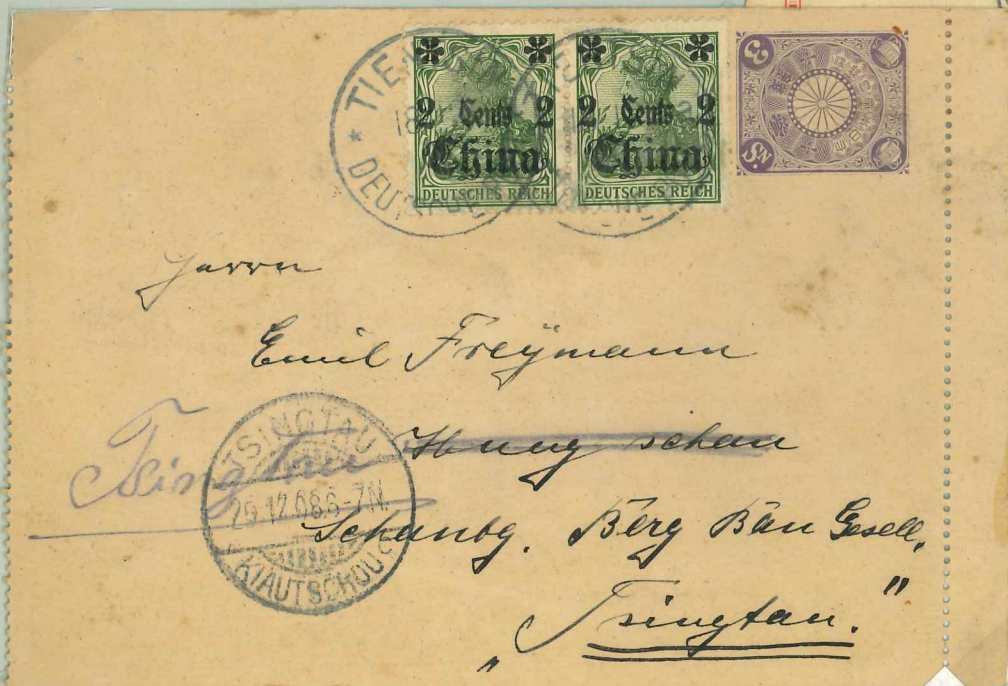 2 Cents 2
China
DEUTSCHES REICH
2 Cents 2
China
DEUTSCHES REICH
3
Sn.
Herrn
Emil Freymann
Hung schan
Tsingtau
TSINGTAU
29.12.08.6-7N.
KIAUTSCHOU
Schantg. Berg Bau Gesell.
„Tsingtau."